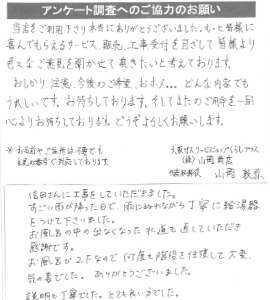 アンケート調査へのご協力のお願い
当店をご利用下さり本当にありがとうございました。もっと皆様に
喜んでもらえるサービス、販売、工事受付を目ざして皆様より
色々なご意見を聞かせて頂きたいと考えております。
おしかり、注意、今後のご希望、おホメ…どんな内容でも
うれしいです。お待ちしております。そしてまたのご用命を一同
心よりお待ちしております。どうぞよろしくお願いします。
※お名前やご住所は
大阪ガスサービスショップくらしプラス
(株)山岡商店
山岡
信田さんに工事をしていただきました。
すごい雨が降った日で、雨にぬれながら丁寧に給湯器
をつけて下さいました。
お風呂の中の出なくなった水道も直していただき
感謝です。
お風呂が2Fなので何度も階段を往復して大変、
気の毒でした。ありがとうございました。
説明も丁寧でした。とても良い方でした。